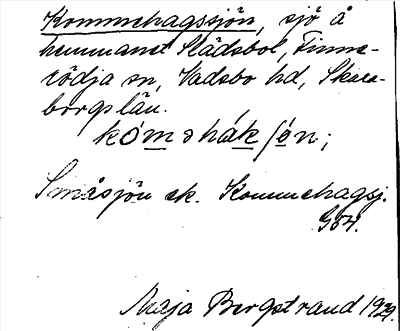 Kommehagssjön, sjö å
hemmanet Slädebol, Finne-
rödja sn, Vadsbo hd, Skara-
borgs län.
kóməhákſön;
Småsjön ek. Kommehagsj.
Maja Bergstrand 1929.